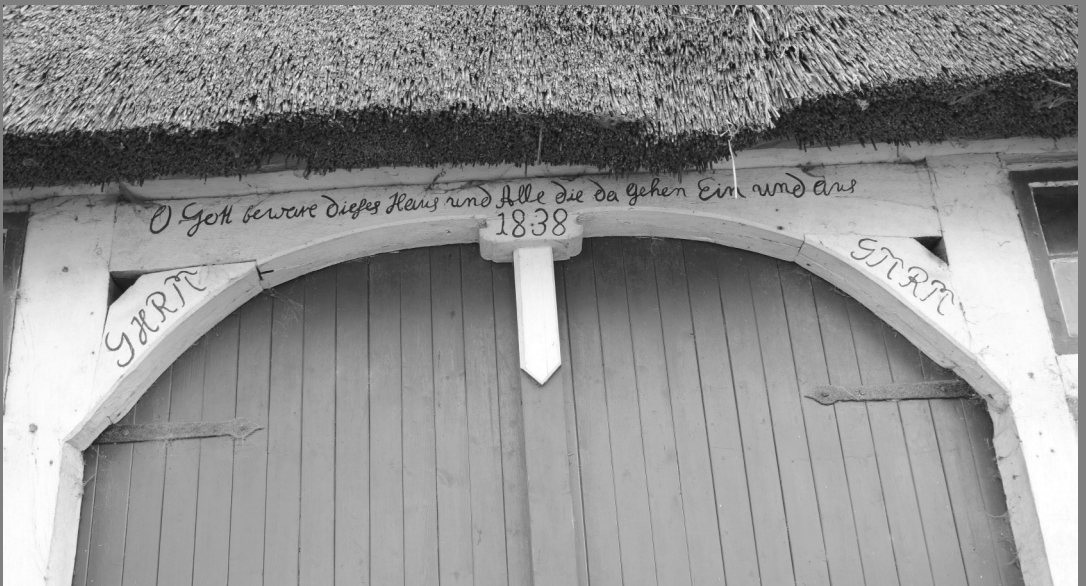 O Gott beware dieses Haus und Alle die da gehen Ein und aus
18:38
GHRM
GMRM